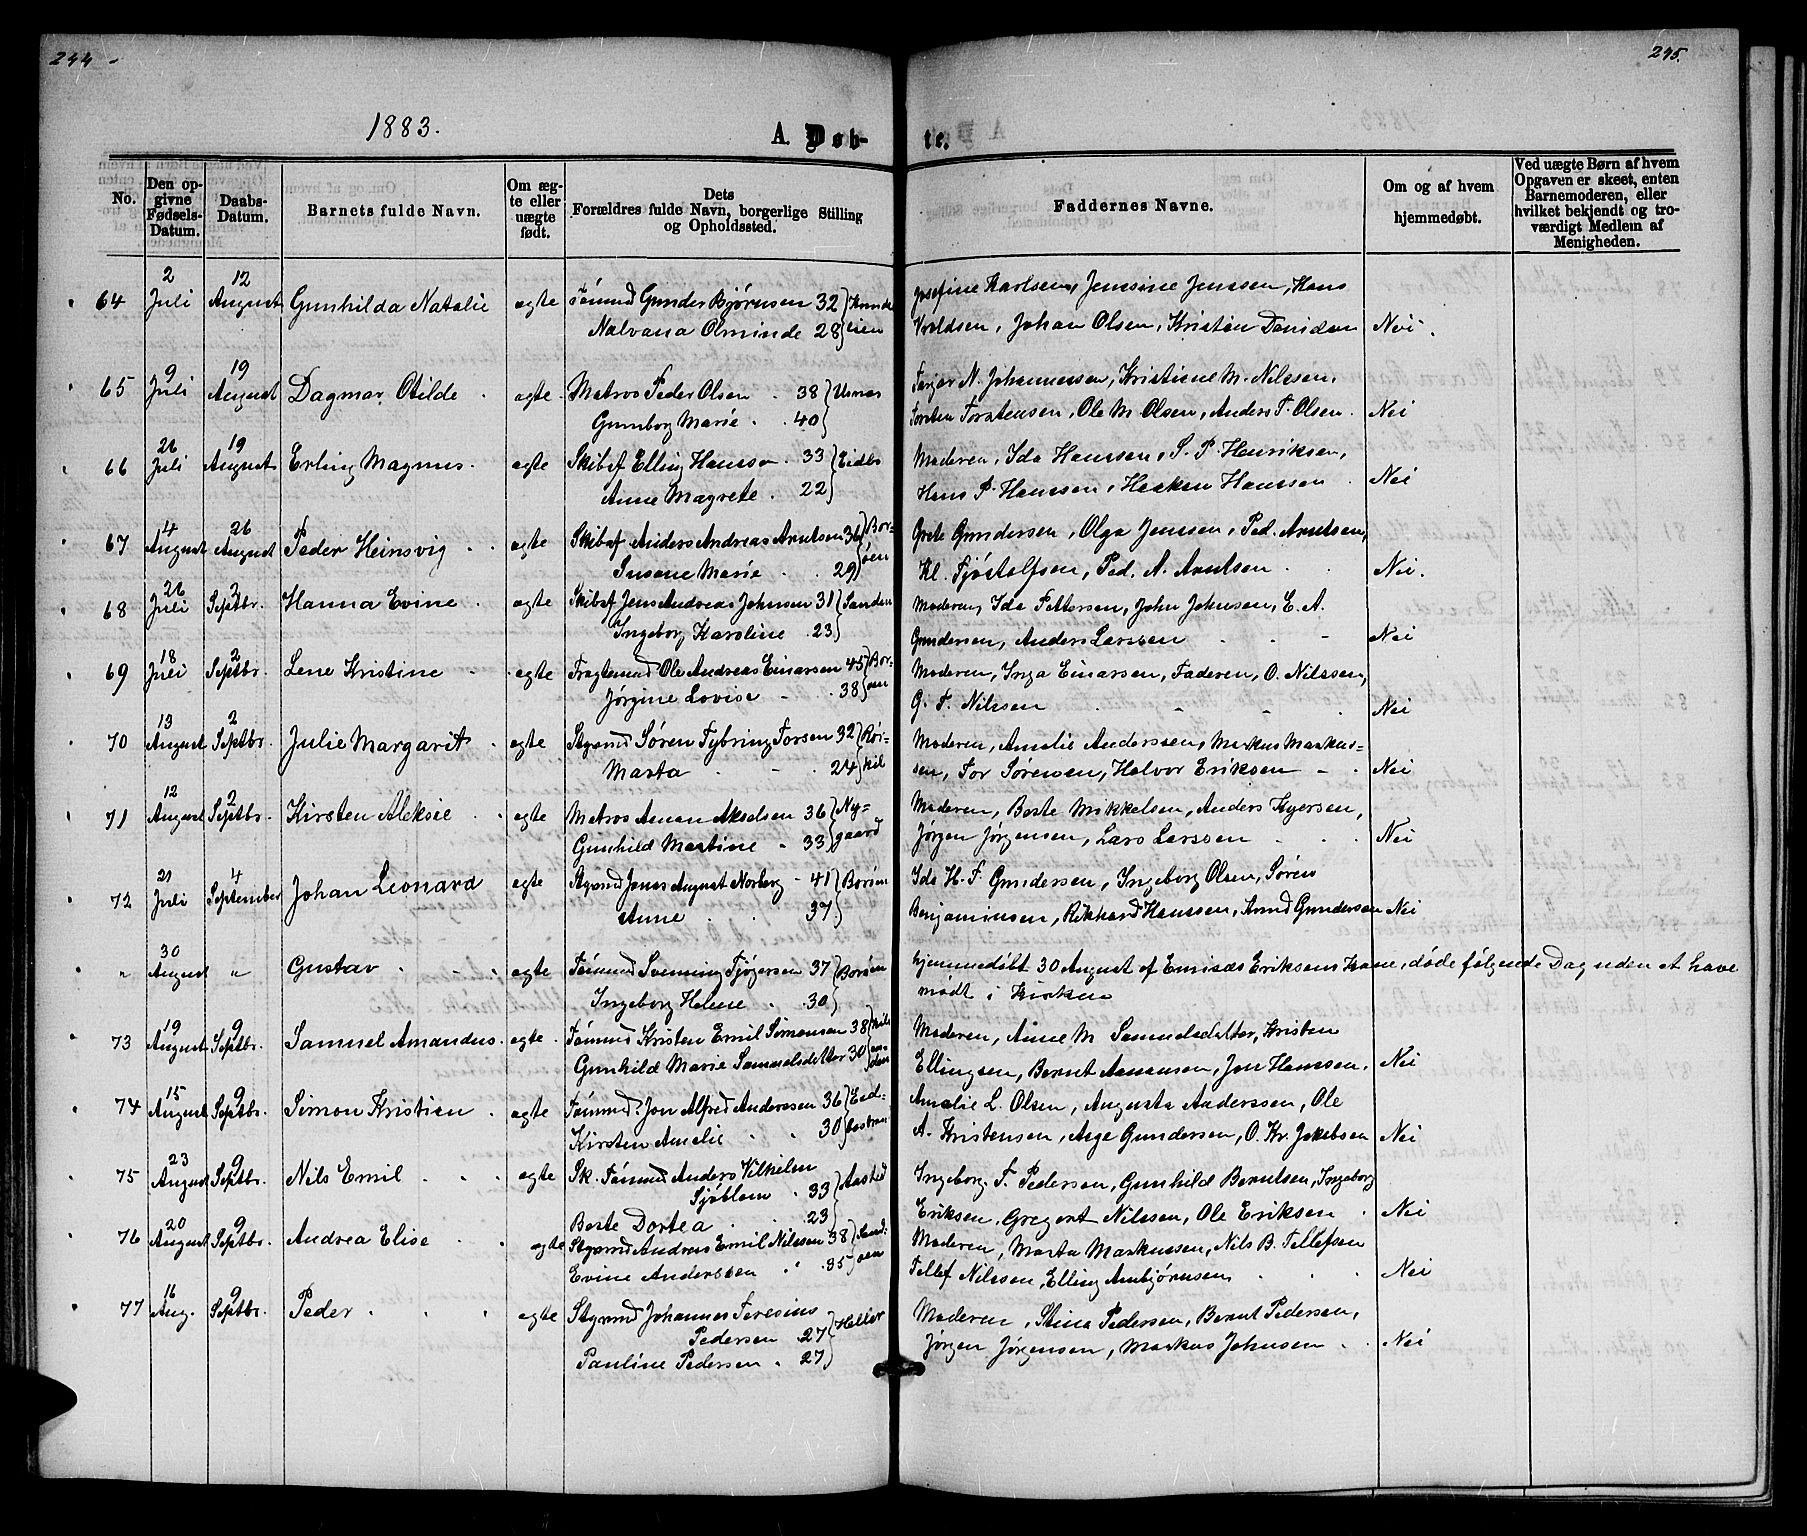 244
245.
1883.
A. Døb-
te.
No.
Den op-
givne
Fødsels-
Datum.
Daabs-
Datum.
Barnets fulde Navn.
Om æg-
te eller
uægte
født.
Dets
Forældres fulde Navn, borgerlige Stilling
og Opholdssted.
Faddernes Navne.
Om og af hvem
hjemmedøbt.
Ved uægte Børn af hvem
Opgaven er skeet, enten
Barnemoderen, eller
hvilket bekjendt og tro-
værdigt Medlem af
Menigheden.
64 2 Juli 12 August Gunhilda Natalie ægte Tømmd Gunder Bjørnsen 32
Nalvana Olminde 28
Josefine Karlsen, Jensine Jenssen, Hans
Voldsen, Johan Olsen, Kristen Danielsen Nei.
65 9 Juli 19 August Dagmar Otilde ægte Matros Peder Olsen 38
Gunborg Marie 40
Terjer N. Johannessen, Kristiene M. Nilssen,
Torsten Torstensen, Ole M. Olsen, Anders T. Olsen. Nei
66 26 Juli 19 August Erling Magnus ægte Skibsf Elling Hansso 33 Eidbo
Anne Magrete 22
Moderen, Ida Hanssen, S. P. Henriksen,
Hans P. Hanssen, Haaken Hanssen Nei
67 4 August 26 August Peder Heinsvig ægte Skibsf Anders Andreas Arntsen 36 Bor-
Susane Marie 29 øen
Grete Gundersen, Olga Jenssen, Ped. Arntsen,
Kl. Fjøstolfsen, Ped. A. Arntsen Nei.
68 26 Juli 2 Septbr. Hanna Evine ægte Skibsf Jens Andreas Johnsen 31 Sanden
Ingeborg Karoline 23
Moderen, Ida Pettersen, John Johnsen, E. A.
Gundersen, Anders Larssen Nei
69 18 Juli 2 Septbr. Lene Kristine ægte Fragtemd Ole Andreas Einarsen 45 Bor-
Jørgine Lovise 38 øen
Moderen, Inga Einarsen, Faderen, O. Nilssen,
G. T. Nilssen Nei
70 13 August 2 Septbr. Julie Margarit ægte Styrmd Søren Fybring Torsen 32
Marta 24
Moderen, Amalie Anderssen, Markus Markus-
sen, Tor Sørensen, Halvor Eriksen Nei
71 12 August 2 Septbr. Kirsten Aleksie ægte Matros Aanon Akselsen 36 Ny-
Gunhild Martine 33 gaard
Moderen, Berte Mikkelsen, Anders Kyersen,
Jørgen Jørgensen, Lars Larssen Nei
72 21 Juli 4 September Johan Leonard ægte Styrmd Jonas August Norberg 41 Borøen
Anne 37
Ida H. F. Gundersen, Ingeborg Olsen, Søren
Benjaminsen, Rikhard Hanssen, Avnd Gundersen Nei
" 30 August " Gustav ægte Tømmd Svenning Tjøgersen 37 Borøen
Ingeborg Helene 30
hjemmedøbt 30 August af Emisæs Eriksens Kone, døde følgende Dag uden at have
mødt i Kirken
73 19 August 9 Septbr. Samuel Amandus ægte Tømmd Kristen Emil Simonsen 38
Gunhild Marie Samuelsdatter 30
Moderen, Anne M. Samuelsdatter, Kristen
Ellingsen, Bernt Aanonsen, Jon Hanssen. Nei
74 15 August 9 Septbr. Simon Kristian ægte Tømmd. Jon Alfred Anderssen 36 Eid-
Kirsten Amalie 30 bostran
Amalie L. Olsen, Augusta Anderssen, Ole
A. Kristensen, Aage Gundersen, O. Kr. Jakobsen Nei
75 23 August 9 Septbr. Nils Emil ægte Sk. Tømmd Anders Vilhelm
Sjøblom 33 Aasted
Berte Dortea 23
Ingeborg T. Pedersen, Gunhild Berntsen, Ingeborg
Eriksen, Gregert Nilssen, Ole Eriksen Nei
76 20 August 9 Septbr. Andrea Elise ægte Styrmd Andreas Emil Nilssen 38 Sand-
Evine Anderssen 35 øen
Moderen, Marta Markussen, Nils B. Tellefsen
Tellef Nilssen, Elling Anbjørnsen Nei
77 16 Aug. 9 Septbr. Peder ægte Styrmd Johannes Teresius
Pedersen 27 Heller
Pauline Pedersen 27
Moderen, Stina Pedersen, Bernt Pedersen,
Jørgen Jørgensen, Markus Johnsen Nei